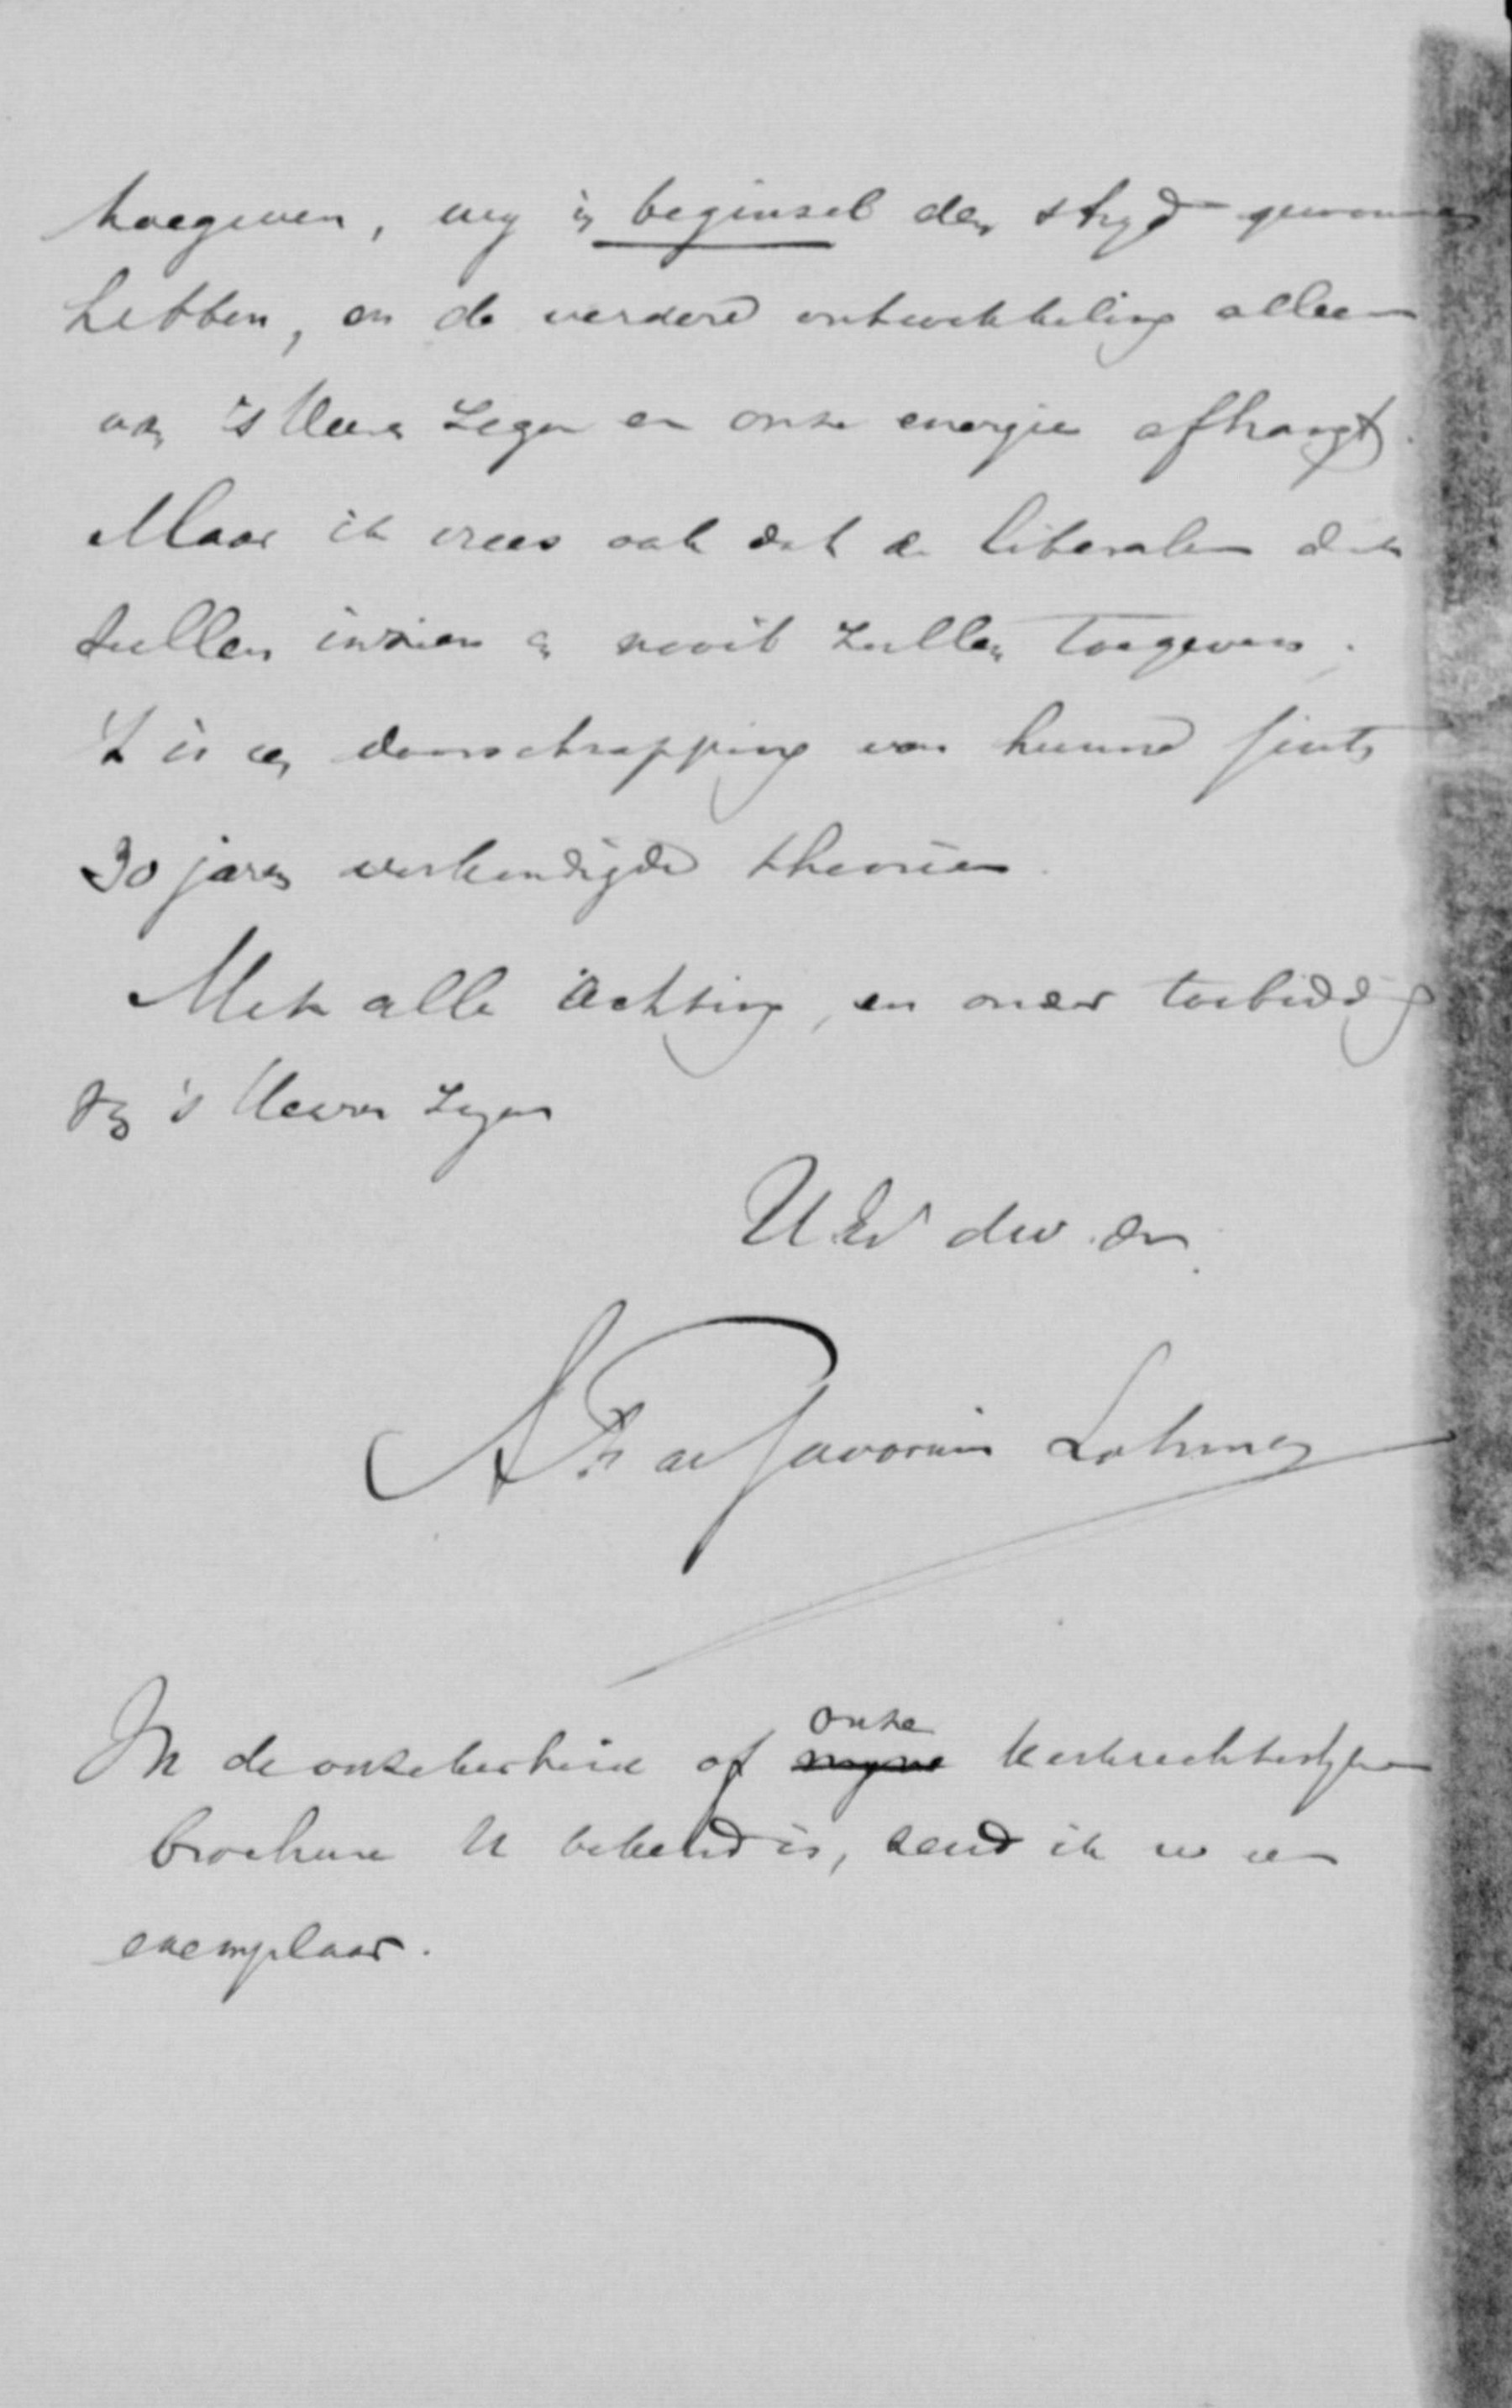 toegeven, wy in beginsel den stryd gewonnen
hebben, en de verdere ontwikkeling alleen
van 's Heeren Zegen en onze energie afhangt.
Maar ik vrees ook dat de liberalen dit
zullen inzien en nooit zullen toegeven.
't is een doorschrapping van hunne sints
30 jaren verkondigde theorien.
Met alle Achting, en onder toebidding
van 's Heeren Zegen
UEd dw. dr.
AF de Savornin Lohman
In de onzekerheid of onze myne kerkrechtelyke
brochure U bekend is, zend ik u een
exemplaar.